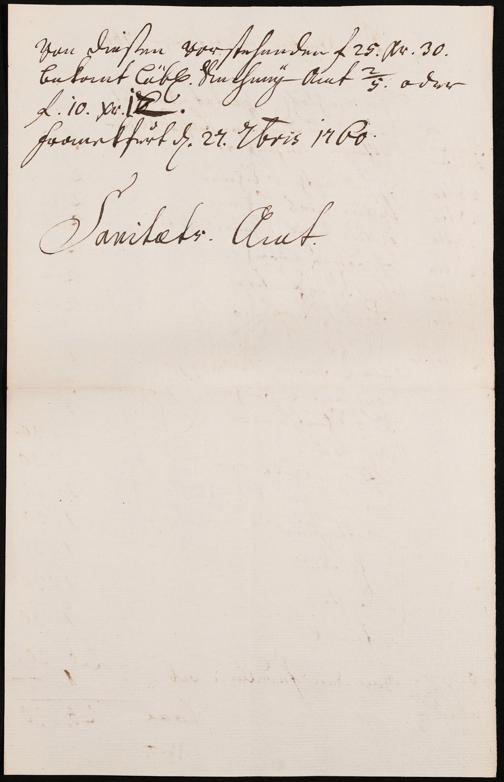 Von diesen vorstehenden f 25. Xr. 30.
bekomt Löbl. Rechney Amt 2/5. oder
f. 10. xr. 12.
Franckfurt d. 27. 7bris 1760.
Sanitæts. Amt.